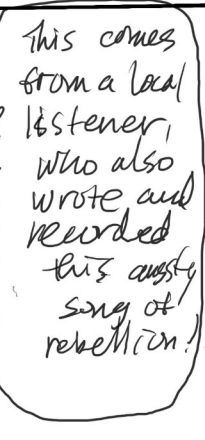 This comes
from a local
listener,
who also
wrote and
recorded
this angsty
song of
rebellion!